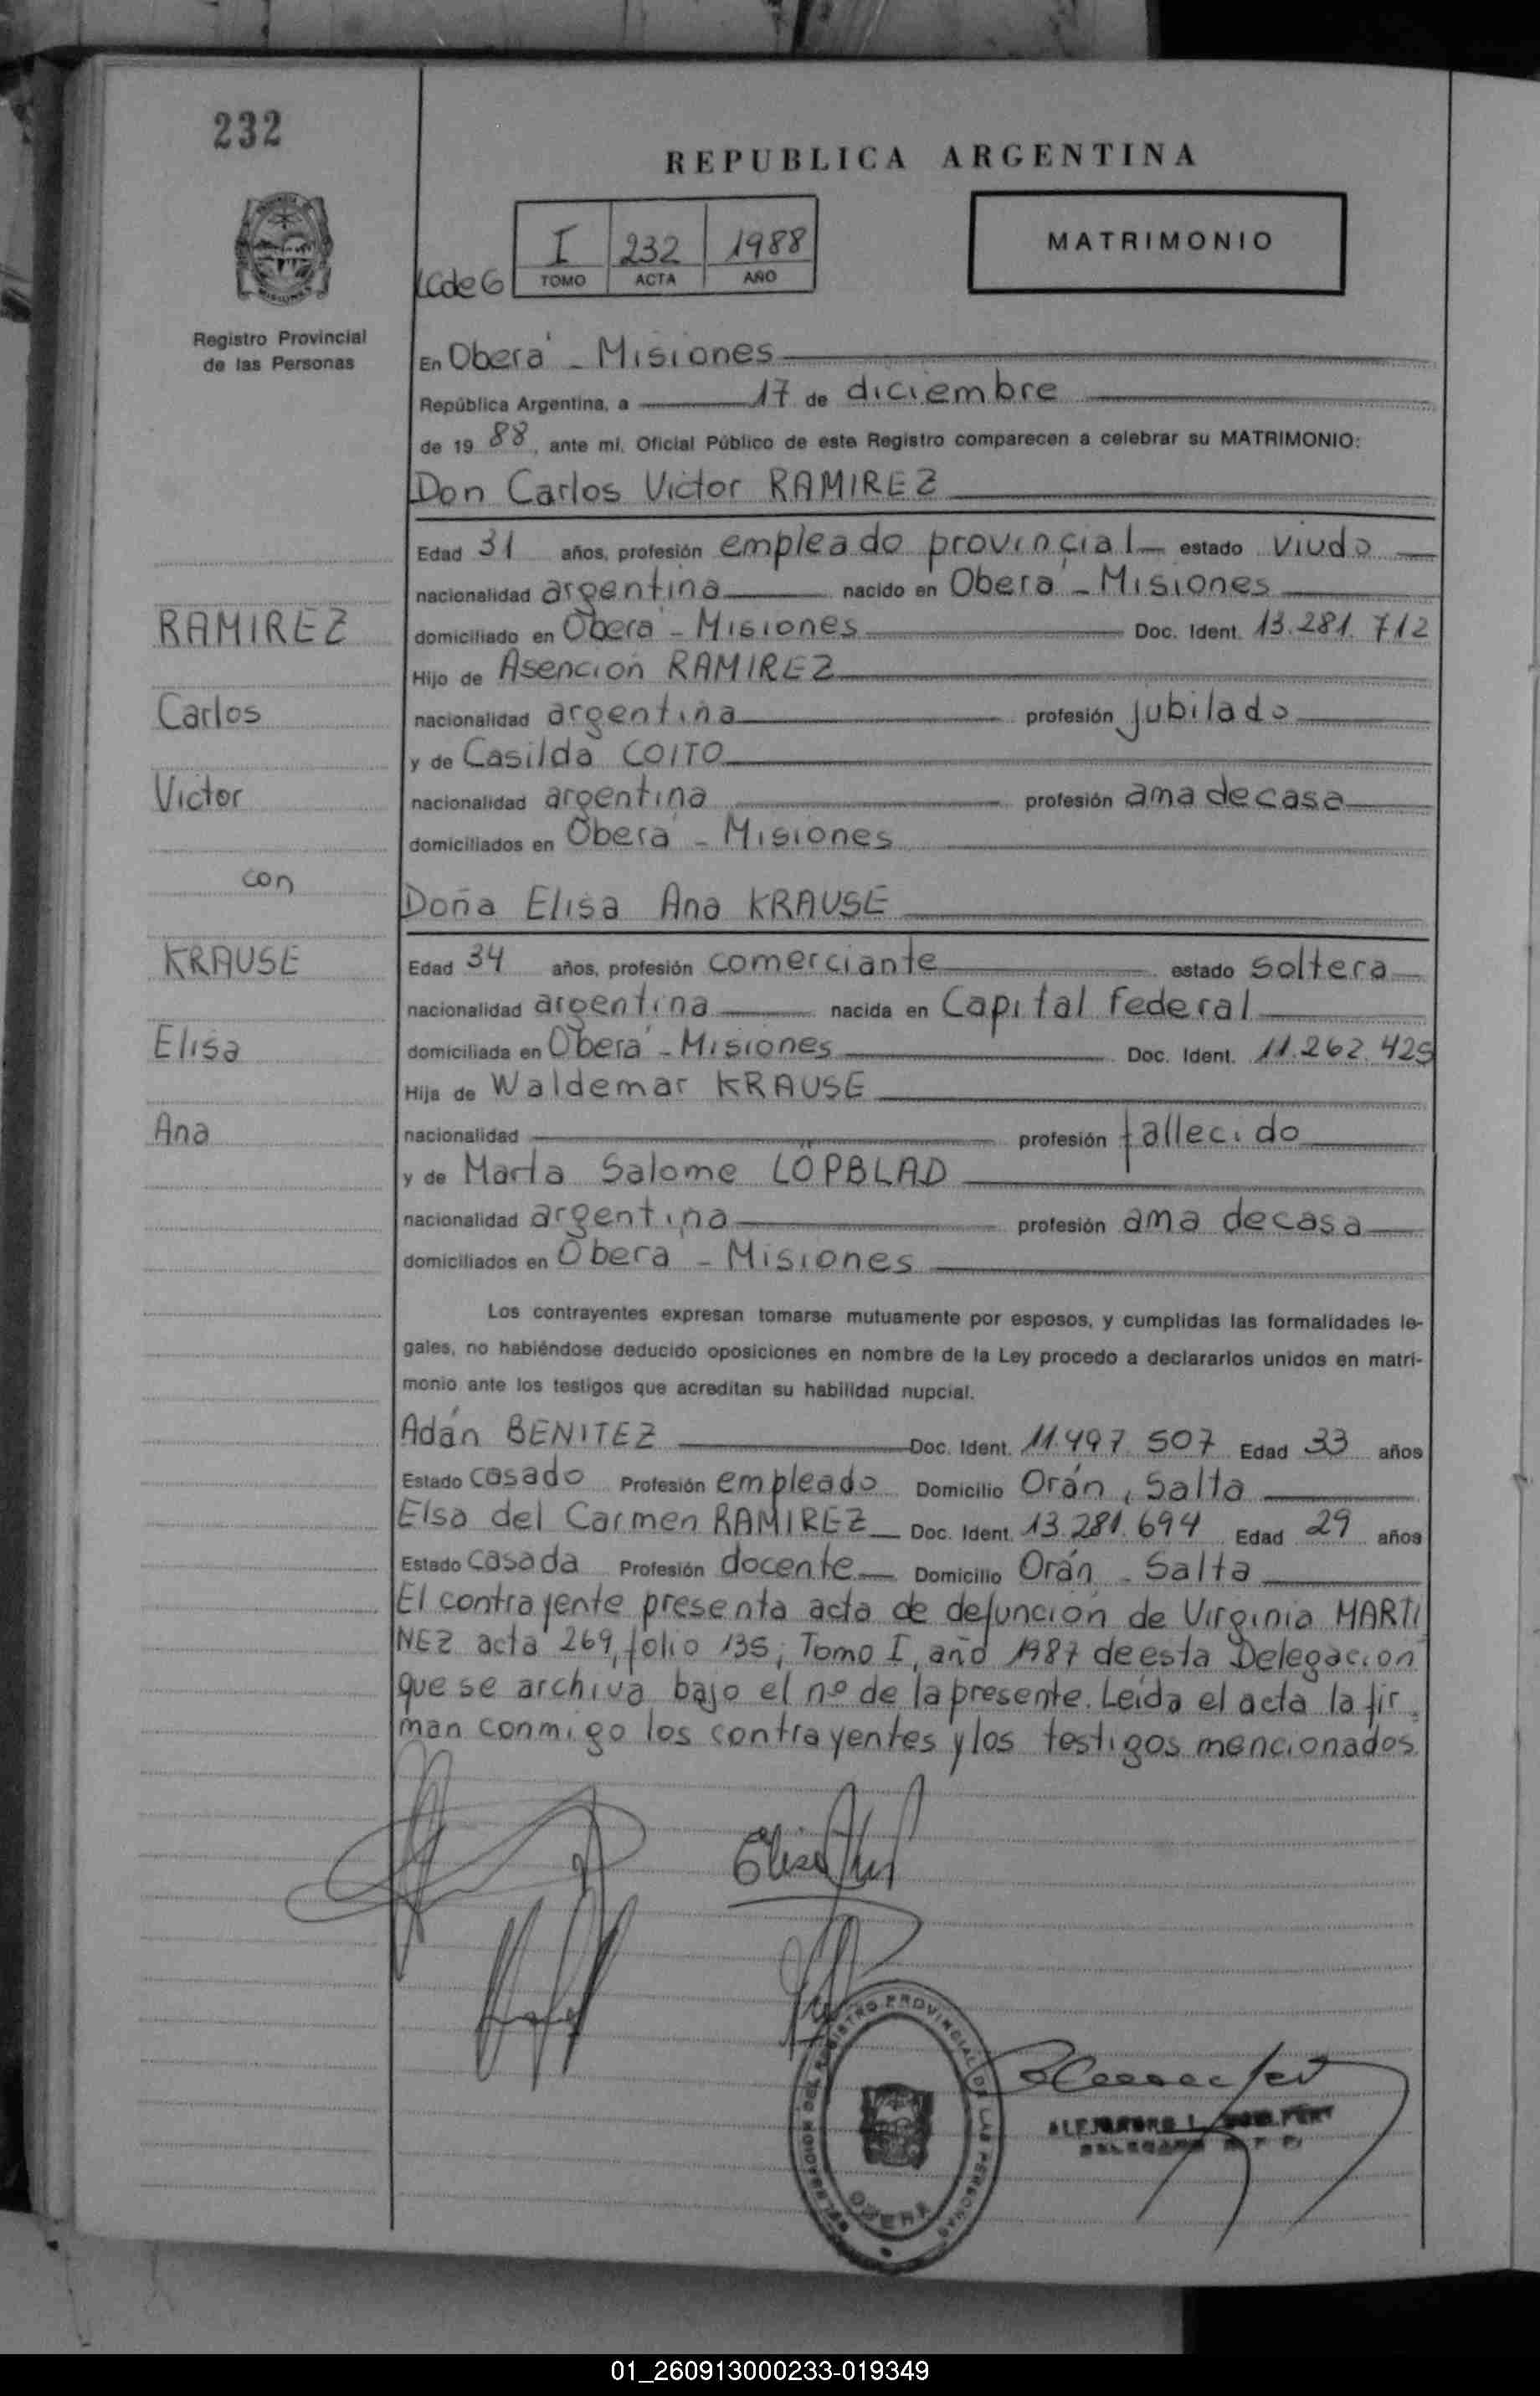 232
REPUBLICA ARGENTINA
I 232 1988
TOMO ACTA AÑO
MATRIMONIO
Registro Provincial
de las Personas
En Oberá - Misiones
República Argentina, a 17 de diciembre
de 19 88, ante mi, Oficial Público de este Registro comparecen a celebrar su MATRIMONIO:
Don Carlos Victor RAMIREZ
Edad 31 años, profesión empleado provincial estado viudo
nacionalidad argentina nacido en Oberá - Misiones
RAMIREZ
domiciliado en Oberá - Misiones Doc. Ident. 13.281.712
Hijo de Asención RAMIREZ
Carlos
nacionalidad argentina profesión jubilado
y de Casilda COITO
Victor
nacionalidad argentina profesión ama de casa
domiciliados en Oberá - Misiones
con
Doña Elisa Ana KRAUSE
KRAUSE
Edad 34 años, profesión comerciante estado soltera
nacionalidad argentina nacida en Capital Federal
Elisa
domiciliada en Oberá - Misiones Doc. Ident. 11.262.425
Hija de Waldemar KRAUSE
Ana
nacionalidad profesión fallecido
y de Marta Salome LÖPBLAD
nacionalidad argentina profesión ama de casa
domiciliados en Oberá - Misiones
Los contrayentes expresan tomarse mutuamente por esposos, y cumplidas las formalidades le-
gales, no habiéndose deducido oposiciones en nombre de la Ley procedo a declararlos unidos en matri-
monio ante los testigos que acreditan su habilidad nupcial.
Adán BENITEZ Doc. Ident. 11.497.507 Edad 33 años
Estado casado Profesión empleado Domicilio Orán, Salta
Elsa del Carmen RAMIREZ Doc. Ident. 13.281.694 Edad 29 años
Estado casada Profesión docente Domicilio Orán - Salta
El contrayente presenta acta de defunción de Virginia MARTI
NEZ acta 269, folio 135, Tomo I, año 1987 de esta Delegación
que se archiva bajo el nº de la presente. Leída el acta la fir
man conmigo los contrayentes y los testigos mencionados.
DELEGACION DEL REGISTRO PROVINCIAL DE LAS PERSONAS
OBERA
01_260913000233-019349